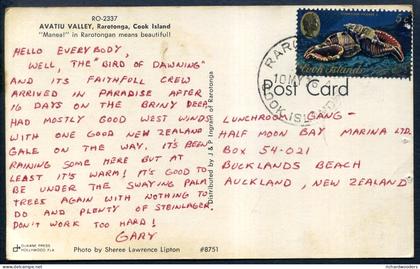 RO-2337
AVATIU VALLEY, Rarotonga, Cook Island
"Manea!" in Rarotongan means beautiful!
HELLO EVERYBODY,
WELL, THE "BIRD OF DAWNING"
AND ITS FAITHFULL CREW
ARRIVED IN PARADISE AFTER
16 DAYS ON THE BRINY DEEP.
HAD MOSTLY GOOD WEST WINDS
WITH ONE GOOD NEW ZEALAND
GALE ON THE WAY. IT'S BEEN
RAINING SOME HERE BUT AT
LEAST IT'S WARM! IT'S GOOD TO
BE UNDER THE SWAYING PALM
TREES AGAIN WITH NOTHING TO
DO AND PLENTY OF STEINLAGER.
DON'T WORK TOO HARD!
GARY
DUKANE PRESS
HOLLYWOOD FLA
Photo by Sheree Lawrence Lipton
#8751
Distributed by J & P Ingram of Rarotonga
Cook Islands
RARO
10 MY
COOK ISLAN
Post Card
LUNCHROOM GANG-
HALF MOON BAY MARINA LTD
BOX 54-021
BUCKLANDS BEACH
AUCKLAND, NEW ZEALAND